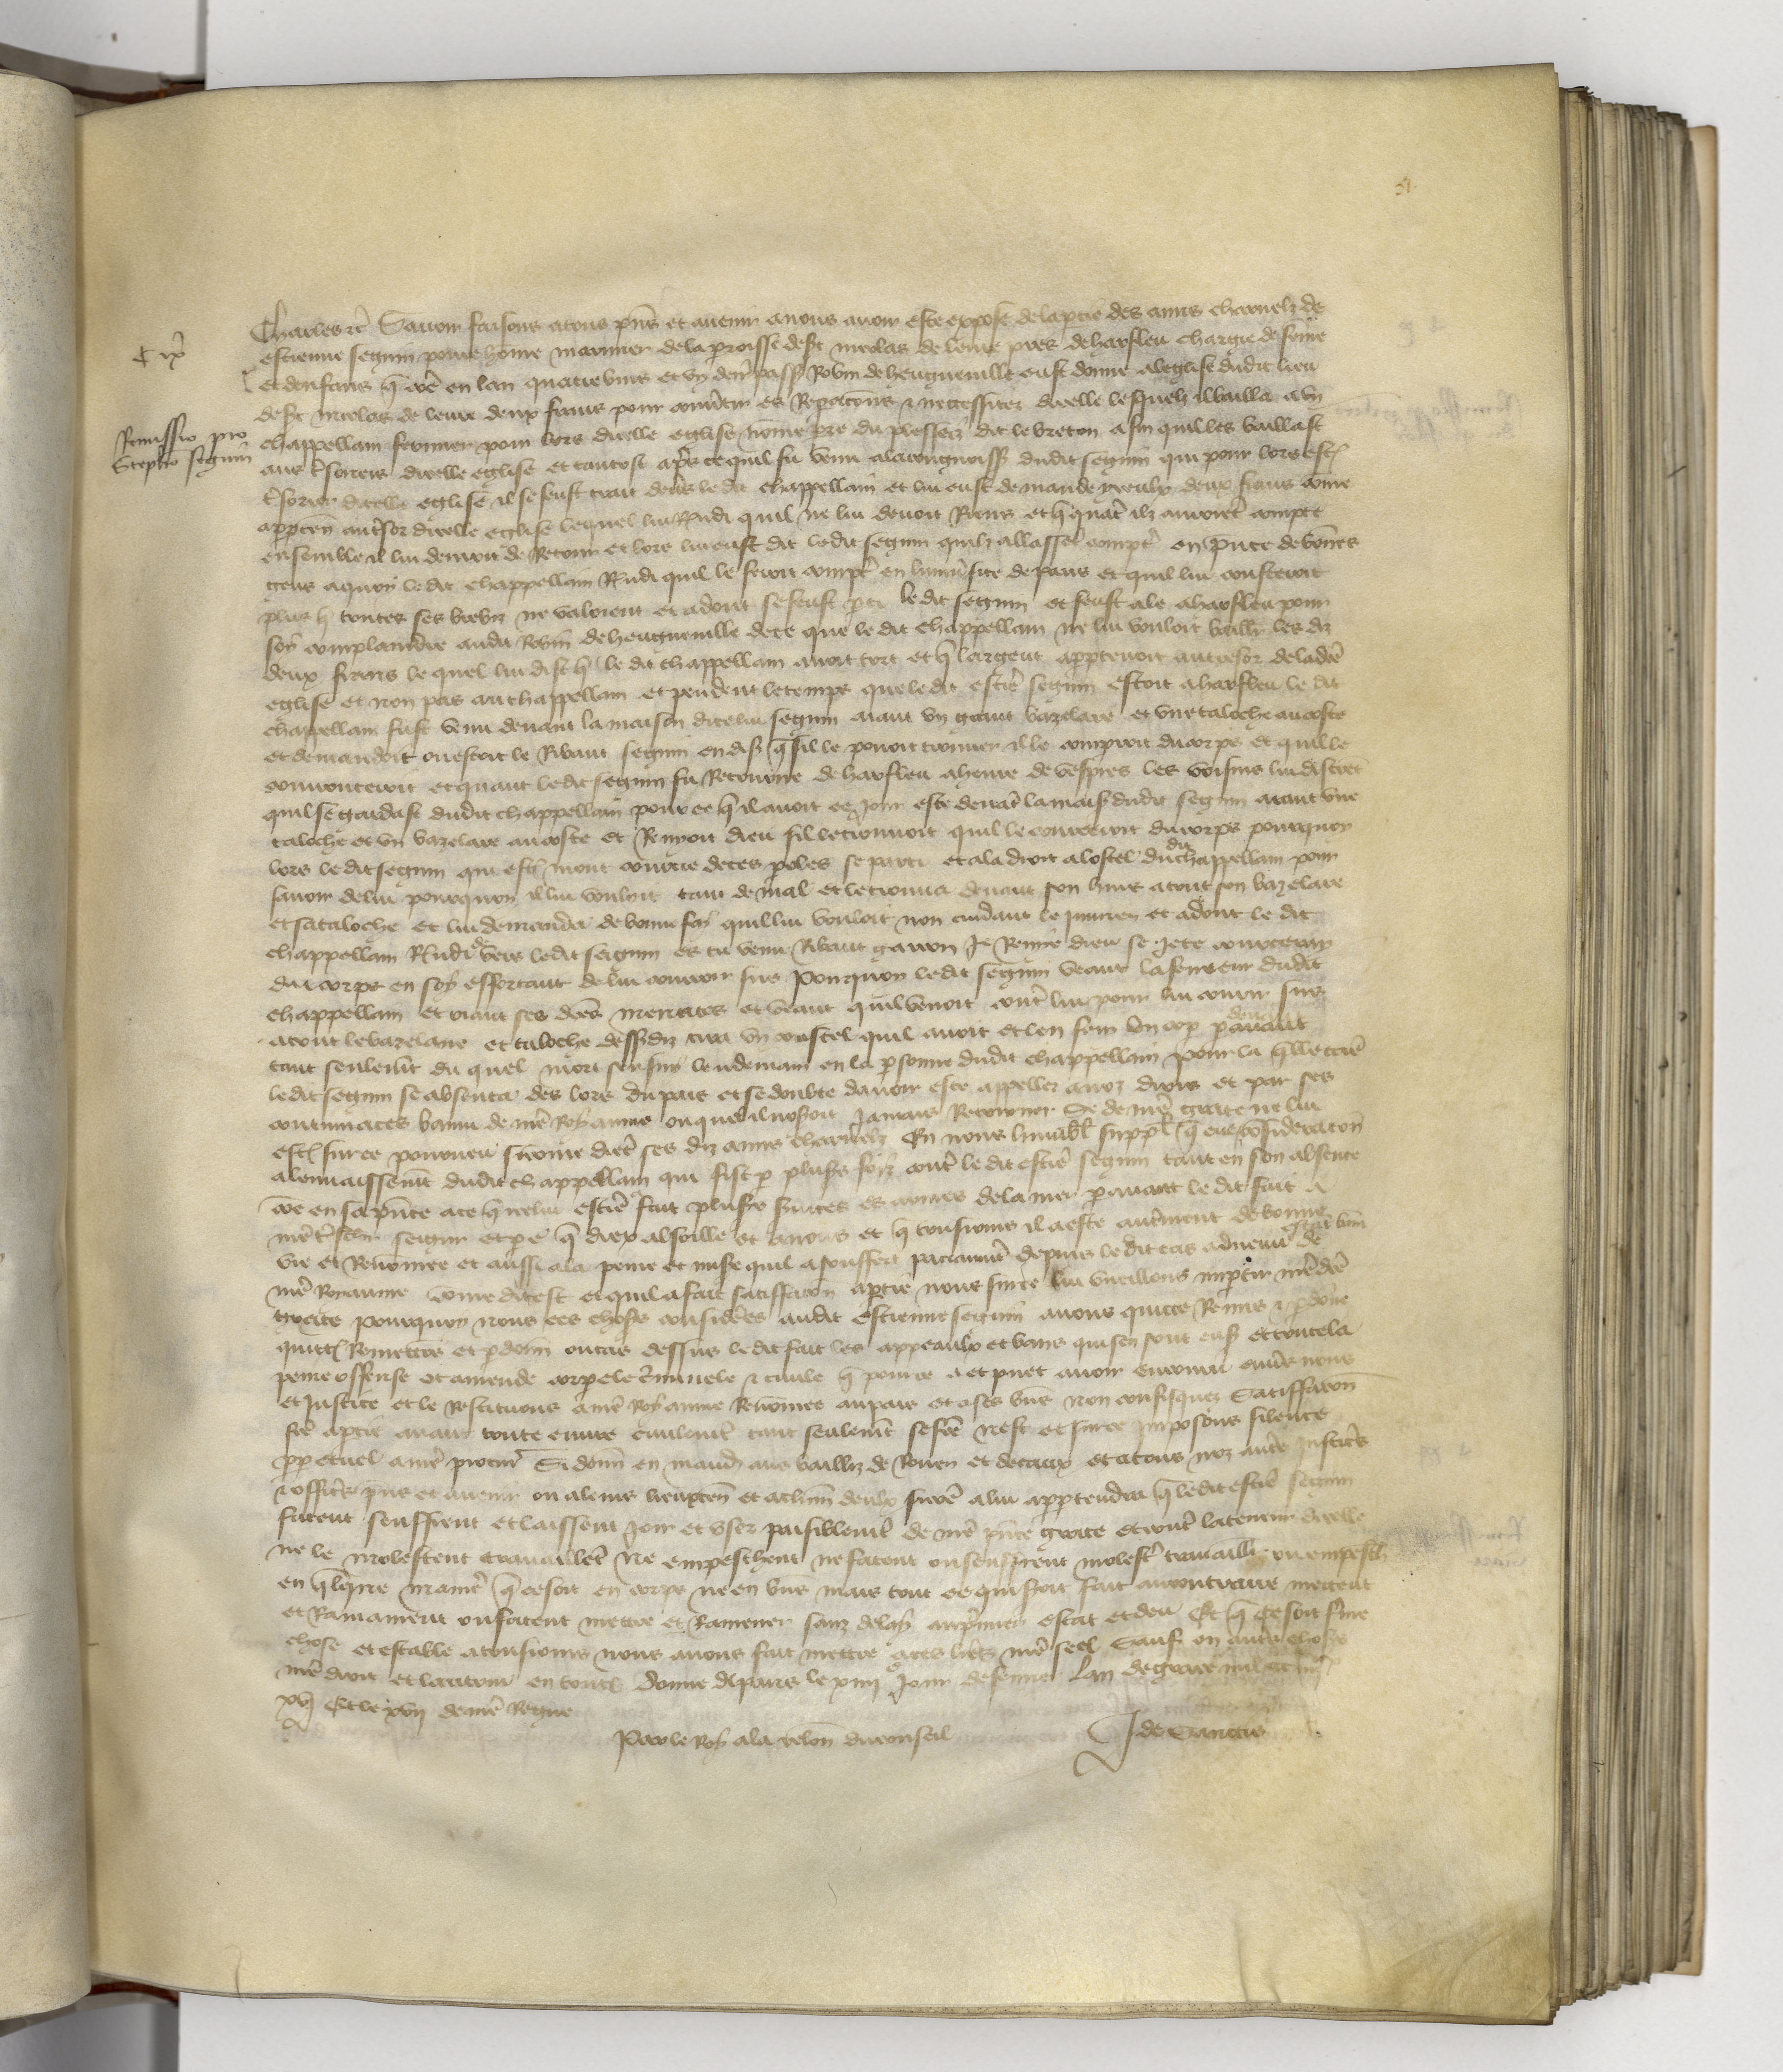 C ix
Remissio pro
Stephō seguin
Charles etc̄ Sauoir faisons a tous p̄ns et auenir a nous auoir este expose de la ptie des amis charnelz de
estienne seguin poure hōme marinier de la parroisse de st nicolas de leure pres de harefleu chargie de fēme
et denfans q̄ cōe en lan quatreuins et vij derr̄ passe Robin de heugueuille eust donne a leglise dudit lieu
de st nicolas de leure deux frans pour conūtir es Reparacōns et neccessitez dicelle lesquelz il bailla a vn
chappellain fermier pour lors dicelle eglise nōme pre du plesseiz dit le breton afin quil les baillast
aus tr̄soriers dicelle eglise et tantost apr̄s ce quil fu venu a la congnoiss̄ dudit seguin qui pour lors est
tr̄sorier dicelle eglise il se feust trait deuers le dit chappellain et lui eust demande yceulx deux frans cōme
apparten au tr̄sor dicelle eglise lequel lui Rn̄di quil ne lui deuoit Riens et q̄ quāt ilz auroiēt compte
ensemble il lui deuroit de Retour et lors lui eust dit le dit seguin quilz allassēt compter en p̄nce de bōnes
gens a quoy le dit chappellain Rn̄di quil le feroit compter en luniūsite de paris et quil lui cousteroit
plus q̄ toutes ses brebiz ne valoient et adont se feust pti le dit seguin et feust ale a harefleu pour
soy complaindre audit Robin de heugueuille de ce que le dit chappellain ne lui vouloit baillr les diz
deux frans le quel lui dist q̄ le dit chappellain auoit tort et q̄ largent appartenoit au tresor de lad̄ce
eglise et non pas au chappellain et pendent le temps que le dit estiē seguin estoit a harefleu le dit
chappellain fust venu deuant la maison dicelui seguin aiant vn grant bazelaire et vne taloche au coste
et demandoit ou estoit le Ribaut seguin en dist q̄ sil le pouoit trouuer il le comproit du corps et quil le
courrouceroit et quant ledit seguin fu Retourne de harefleu a heure de vespres les voisins lui distrēt
quil se gardast dudit chappellain pour ce q̄ il auoit ce jour este deuāt la mais̄ dudit seguin aiant vne
taloche et vn bazelaire au coste et Renioit dieu sil le trouuoit quil le courceroit du corps pourquoy
lors ledit seguin qui est mout courcie de ces peles se parti et ala droit a lostel dudit chappellain pour
sauoir de lui pourquoy il lui vouloit tant de mal et le trouua deuant son huis a tout son bazelaire
et sa taloche et lui demanda de bonne foy quil lui vouloit non cuidant le jniurier et adont le dit
chappellain Rn̄di vers ledit seguin es tu venu Ribaut garcon Je Renie dieu se Je te courceray
du corps en soy efforcant de lui courir sus Pourquoy ledit seguin veant la fureur dudit
chappellain et oiant ses d̄ces menaces et veant quil venoit contr̄ lui pour lui courir sus
a tout le bazelaire et taloche dess̄diz tira vn coustel quil auoit et len feri vn cop deuant
tant seulemt̄ du quel mort sensuy lendemain en la personne dudit chappellain Pour la qlle
ledit seguin se absenta des lors du pais et se doubte dauoir este appellez a noz drois et par ses
contumaces banni de nr̄e Royaume ou quel il noseroit Jamais Retourner Se de nr̄e grace ne lui
est sur ce pourueu sicōme dieēt ses diz amis charnelz En nous humb̄lt suppl̄ q̄ eue cōsideracōn
a lenuaissemt̄ dudit chappellain qui fist p plusrs foiz contr̄ le dit estiē seguin tant en son absence
cōe en sa p̄nce a ce q̄ icelui estiē fait plusrs seruices es armees de la mer parauant le dit fait a
nr̄e tr̄schr̄ seignr et pe q̄ diex absoille et a nous et q̄ tousiours il a este autremēt de bonne
vie et Renōmee et aussi a la peine et misere quil a souffert depuis le dit cas aduenu estāt hors de
nr̄e Royaume cōme dit est et quil a fait satisfaccōn a ptie nous sur ce lui vueillons impartir nr̄e d̄ce
grace Pourquoy nous ces choses considērees audit estienne seguin auons quicte Remis et pdōne
quictōs Remettōs et pdōnōns ou cas dessus le dit fait les appeaulx et bans qui sen sont ensuiz et toute la
peine offense et amende corporele criminele et ciuile q̄ pour ce a et puet auoir encouru enūs nous
et justice et le restituons a nr̄e Royaume Renōmee au pais et a ses biens non confisquez Satisfaccōn
fcē a ptie auant toute euure ciuilemēt tant seulemēt se fcē nest et sur ce jmposons silence
ppetuel a nr̄e procur̄ Si donn̄ en mandt aus bailliz de Rouen et de caux et a tous noz autr̄s justiciers
et officiers p̄ns et auenir ou a leurs lieuxten̄ et a chūn deulx sicōe a lui appartendra q̄ le dit estiē seguin
facent seuffrent et laissent Joir et vser paisiblemt̄ de nr̄e p̄nte grace et contr̄ la teneur dicelle
ne le molestent trauaillēt ne empeschent ne facent ou seuffrent molestr̄ trauaillr̄ ou empeschr̄
en q̄lq̄ie maniere q̄ ce soit en corps ne en biens mais tout ce qui seroit fait au contraire mettent
et Ramainent ou facent mettre et Ramener sanz delay au premier estat et deu Et q̄ ce soit ferme
chose et estable a tousiours nous auons fait mettre a ces lettres nr̄e seel Sauf en autrs choses
nr̄e droit et lautrui en toutes Donne a paris le xiiij jour de feurier Lan de grace mil
xvj Et le xvij de nr̄e Regne
Par le Roy a la relōn du conseil J de Sanctis